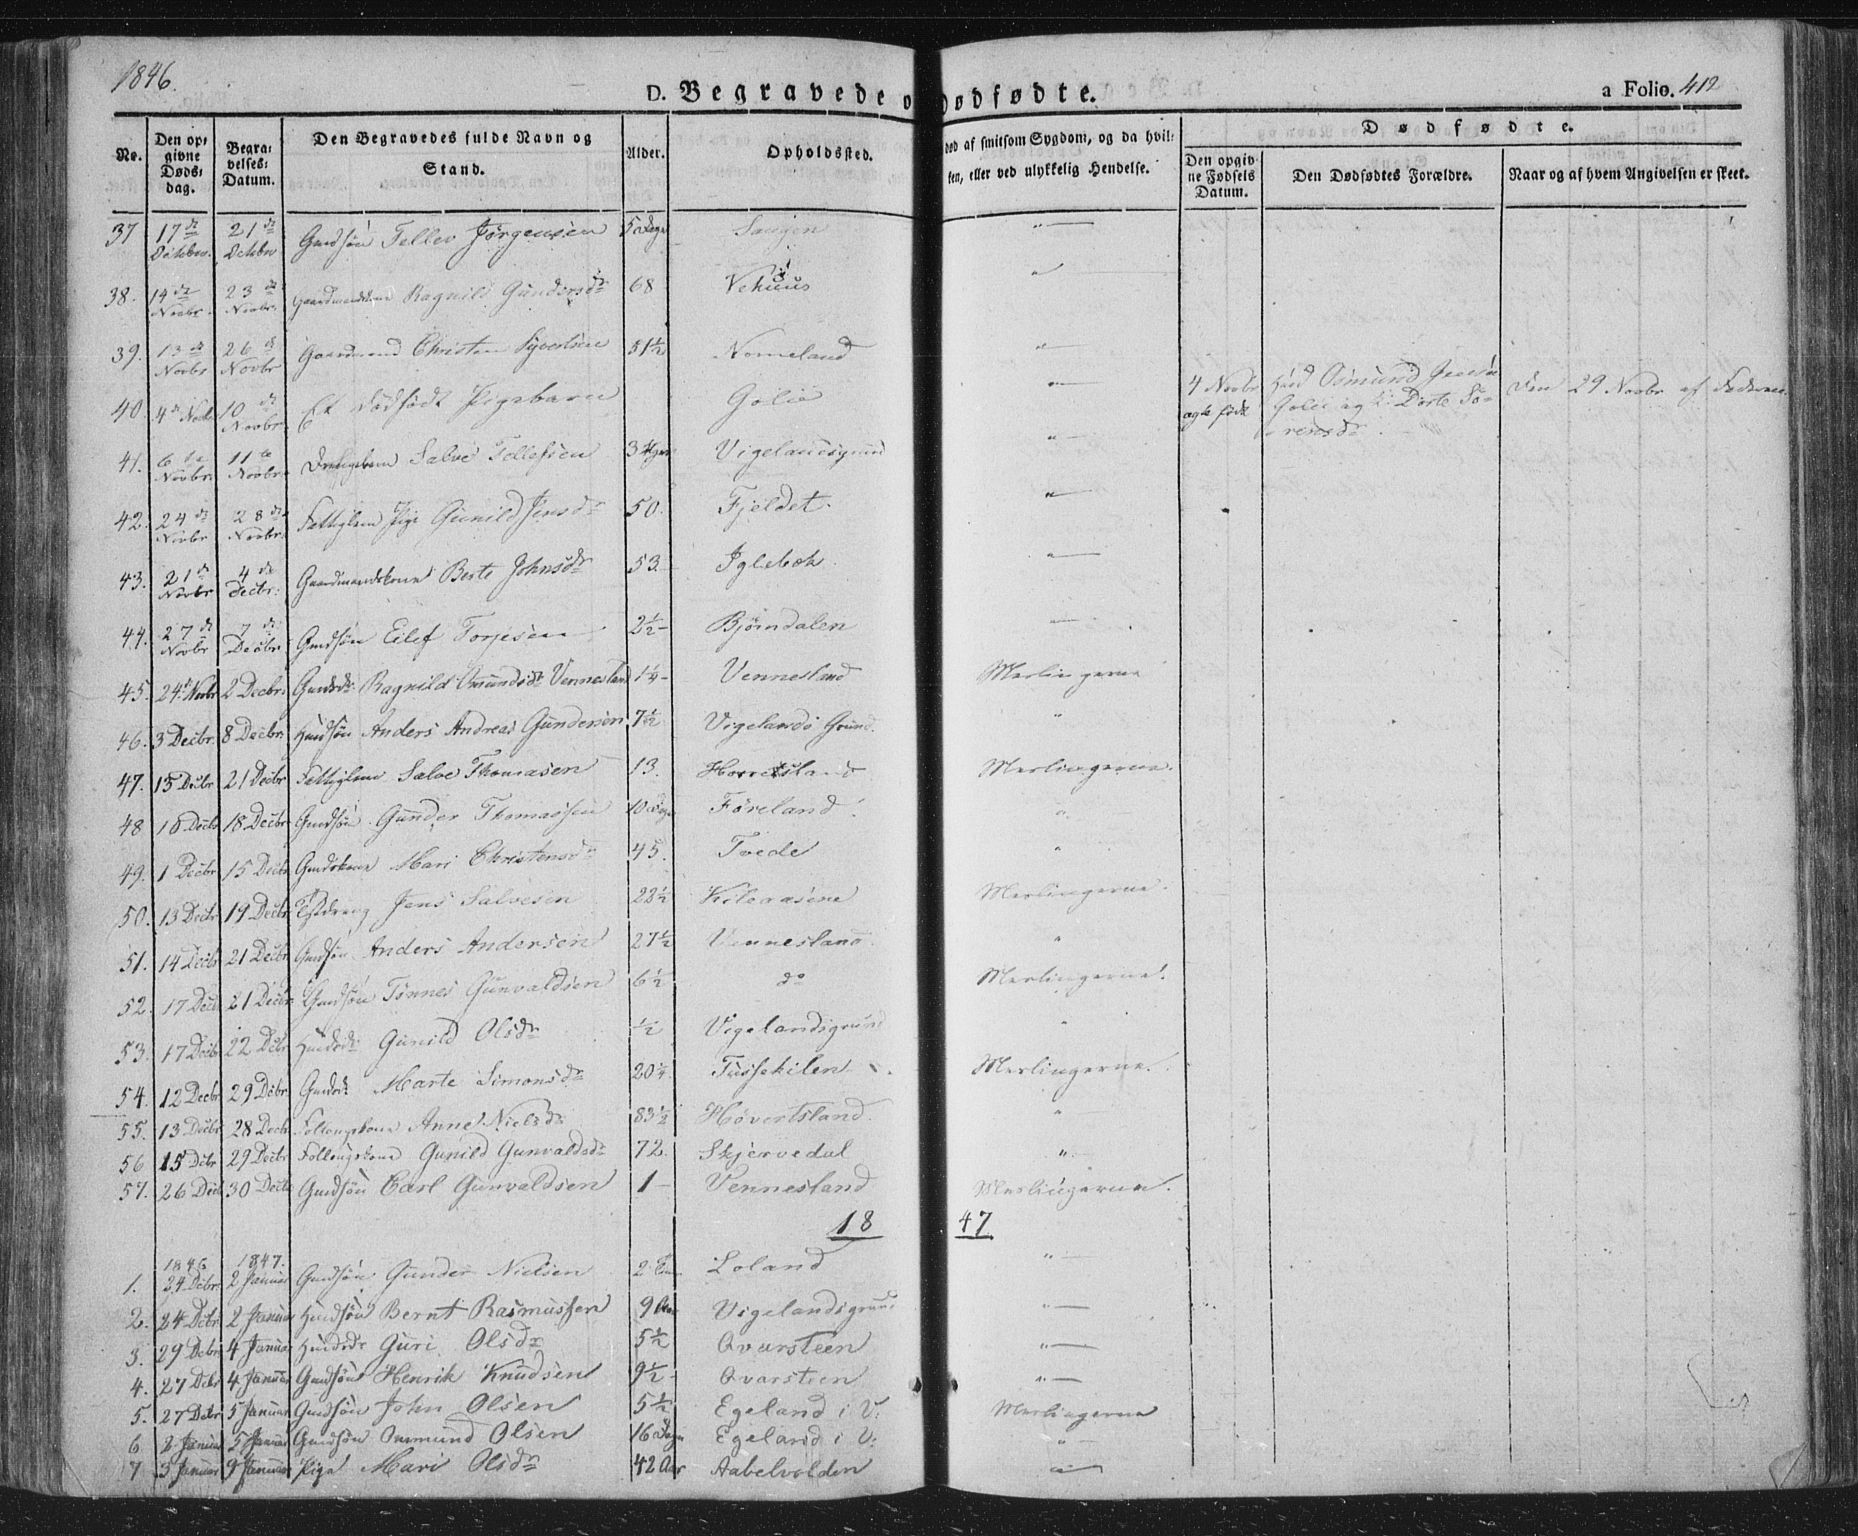 1846.
D. Begravede o Dødfødte.
a Folio. 412
No.
Den op-givne Døds-dag.
Begra-velses-Datum.
Den Begravedes fulde Navn og Stand.
Alder.
Opholdssted.
død af smitsom Sygdom, og da hvil-ken, eller ved ulykkelig Hendelse.
Dødfødte.
Den opgiv-ne Fødsels Datum.
Den Dødfødtes Forældre.
Naar og af hvem Angivelsen er skeet.
37 17de Oktober. 21de Oktober Gmdsøn Tellev Jørgensen 5 Dage Saugen "
38. 14de Novbr. 23de Novbr. Gaardmandskone Ragnild Gundersdr 68 Vehuus "
39. 13de Novbr 26de Novbr Gaardmand Christen Syvertsen 51½ Nomeland "
40. 4de Novbr 10de Novbr Et dødfødt Pigebarn Golie " 4 Novbr ægte født Huusmd Osmund Jensen Golie og K. Dorte Sørensdr. Den 29 Novbr af Faderen
41. 6te Novbr. 11te Novbr. Drengebarn Salve Tellefsen 3 Uger Vigelandsgrund "
42. 24de Novbr 28de Novbr. Fattiglem Pige Gunild Jensdr 50. Fjeldet. "
43. 21de Novbr 4de Decbr. Gaardmandskone Berte Johnsdr 53. Iglebek "
44. 27de Novbr 7de Decbr Gmdsøn Eilef Torjesen 2½ Bjørndalen
45. 24de Novbr 2 Decbr. Gmdsdr. Ragnild Omundsdr Vennesland 1¼ Vennesland Meslingerne
46. 3 Decbr. 8 Decbr. Hmdsøn Anders Andreas Gundersen 7½ Vigelands Grund. "
47. 15 Decbr 21 Decbr Fattiglem Salve Thomasen 13. Horrisland Meslingerne.
48 16 Decbr 18 Decbr Gmdsøn Gunder Thomassen 10 Dage Føreland. "
49. 1 Decbr 15 Decbr Gmdskone Mari Christensdr 45. Tvede "
50. 13 Decbr 19 Decbr Tjstdreng Jens Salvesen 22½ Kileaasene Meslingerne.
51. 14 Decbr 21 Decbr Gmdsøn Anders Andersen 27½ Vennesland. "
52. 17 Decbr 21 Decbr Gmdsøn Tønnes Gunvaldsen 6½ do Meslingerne.
53. 17 Decbr 22 Decbr Hmdsdr Gunild Olsdr ½ Vigelandsgrund "
54. 12 Decbr 29 Decbr. Gmdsdr. Marte Simonsdr 20¼ Tusskilen Meslingerne.
55. 13 Decbr 28 Decbr Føllongskone Anne Nielsdr 83½ Høvertsland. "
56 15 Decbr 29 Decbr Føllongskone Gunild Gunvaldsdr 72. Skjervedal "
57. 26 Decbr 30 Decbr Gmdsøn Carl Gunvaldsen 1 Vennesland Meslingerne.
18 47
1846 1847.
1. 24 Decbr 2 Januar Gmdsøn Gunder Nielsen 2 Loland "
2. 24 Decbr 2 Januar Hmdsøn Bernt Rasmussen 9 Vigelandsgrund "
3. 29 Decbr 4 Januar Hmdsdr Guri Olsdr 5½ Qvarsteen "
4. 27 Decbr 4 Januar Gmdsøn Henrik Knudsen 9½ Qvarsteen "
5. 27 Decbr 5 Januar Gmdsøn John Olsen 5½ Egeland i V: Meslingerne
6 2 Januar 5 Januar Gmdsøn Ommund Olsen 16 Dage Egeland i V: "
7 3 Januar 9 Januar Pige Mari Olsdr 42 Aar Aabelvolden "